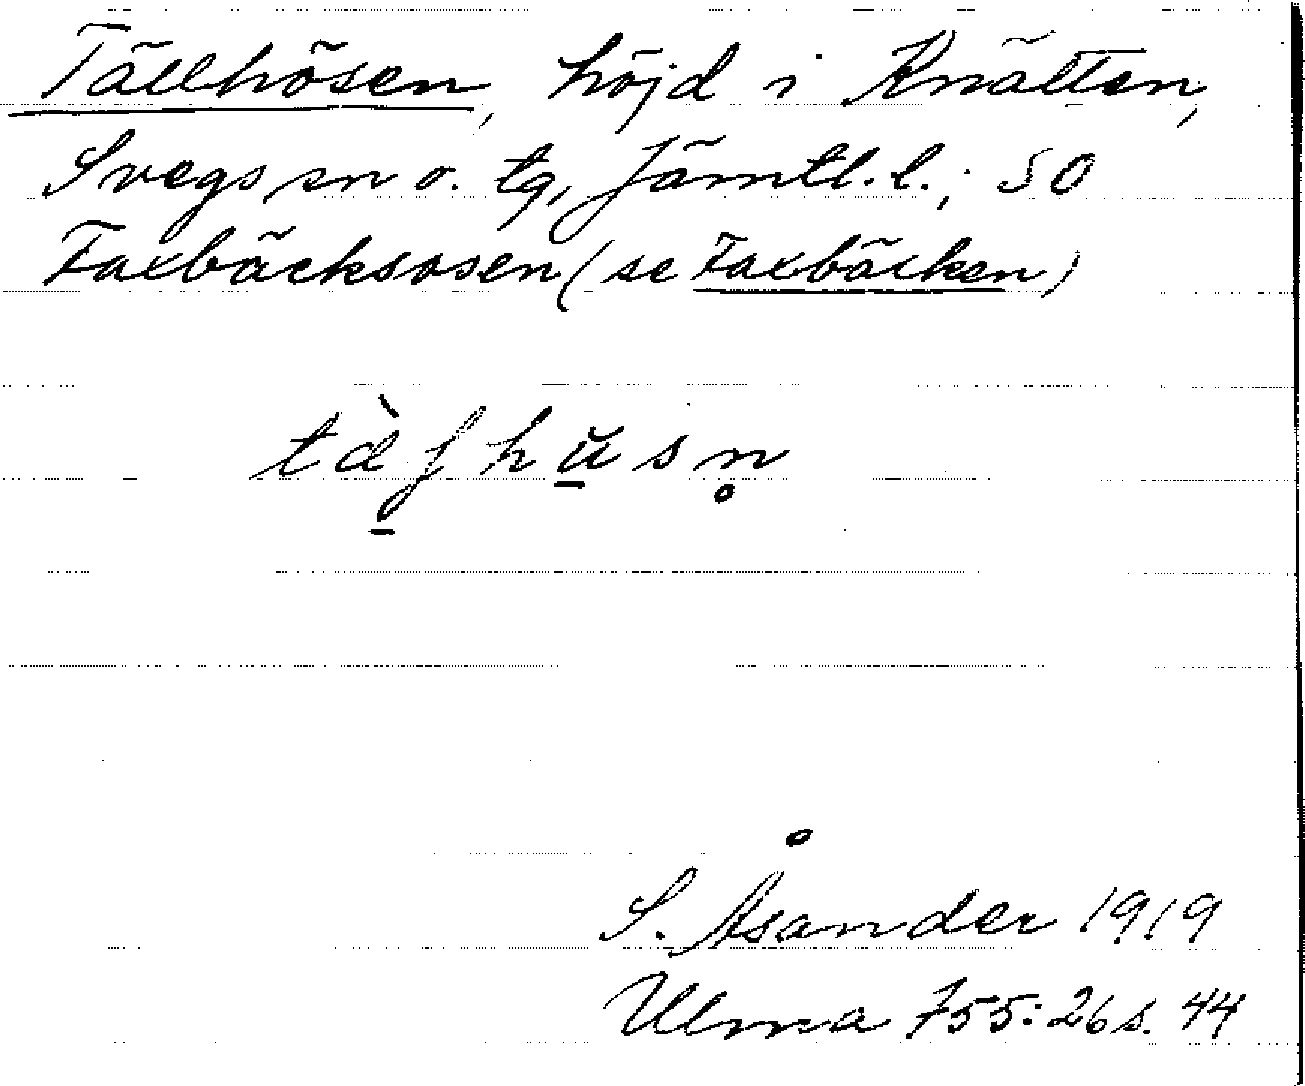 Tällhösen, höjd i Knätten,
Svegs sn o. tg, Jämtl. l.; SO
Faxbäcksosen (se Faxbäcken)
S. Åsander 1919
Ulma 755:26 s. 44